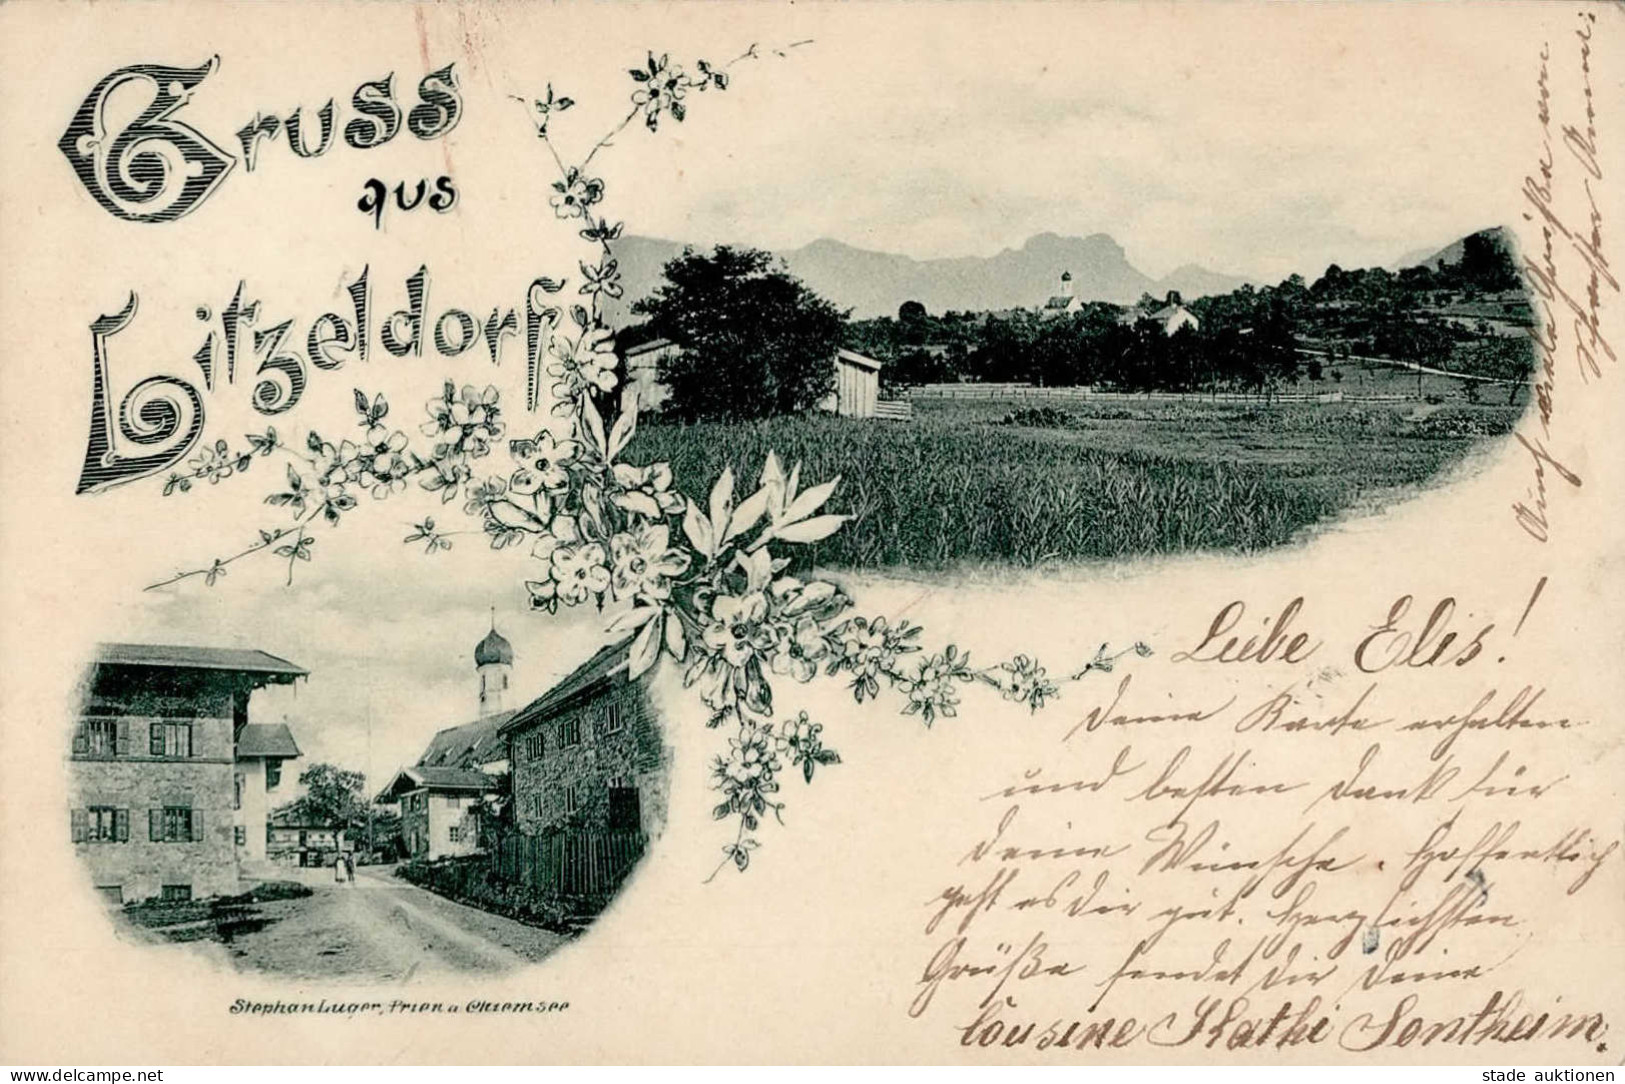 Gruss
aus
Litzeldorf
Auch viele Grüße von
Schwester Anna.
Liebe Elis!
Deine Karte erhalten
und besten Dank für
Deine Wünsche. Hoffentlich
geht es Dir gut. Herzlichsten
Grüße sendet Dir Deine
Cousine Kathi Sontheim.
Stephan Luger, Prien a Chiemsee
delcampe.net
stade auktionen